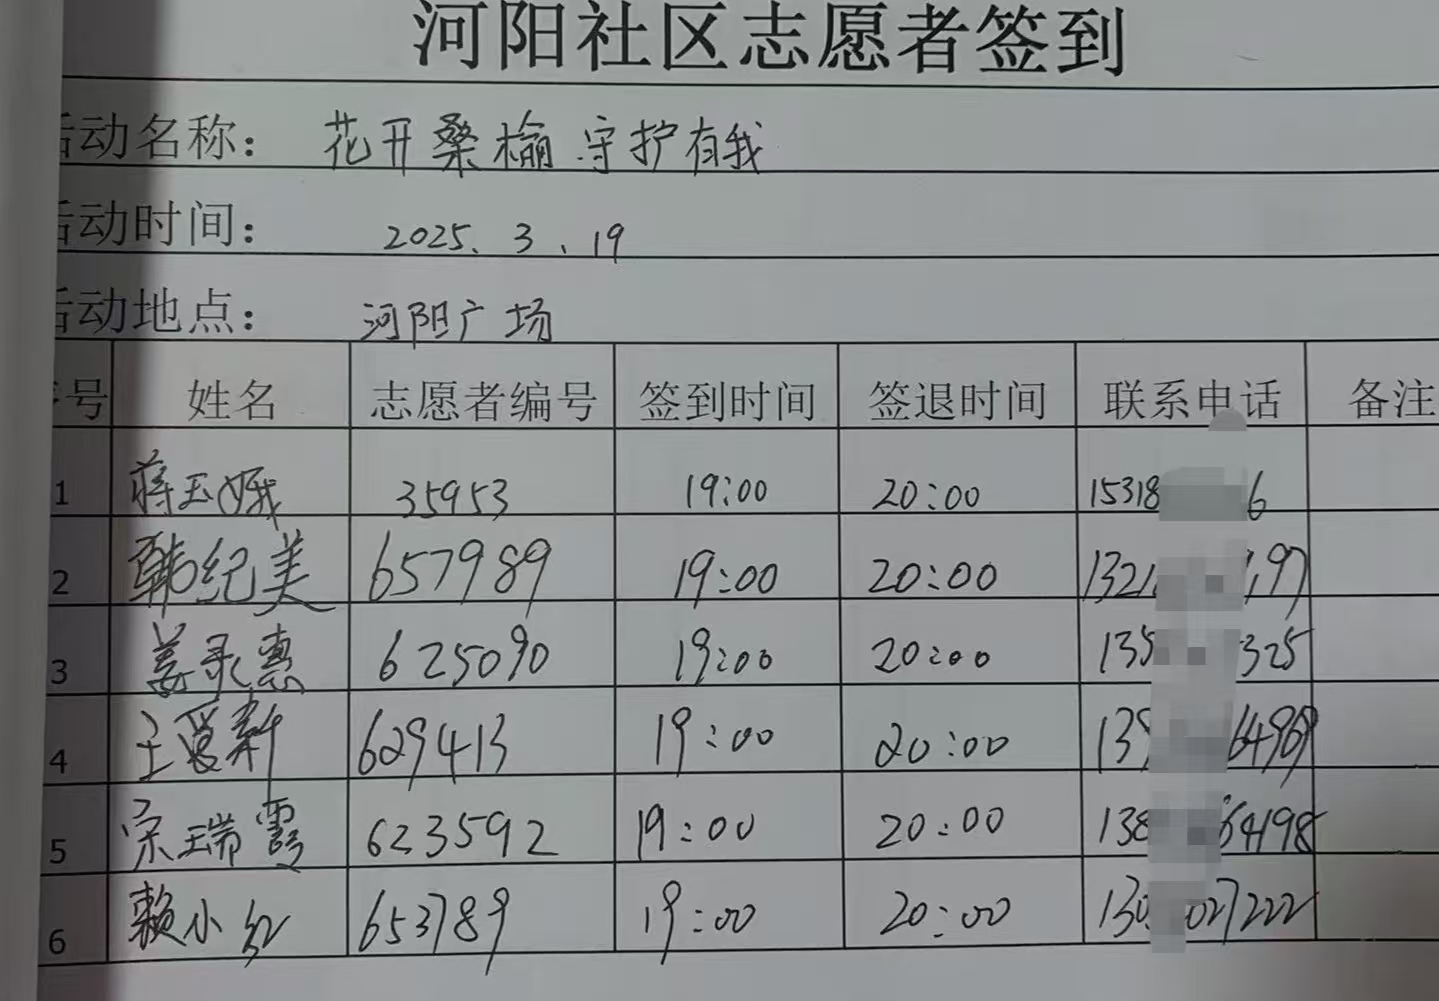 河阳社区志愿者签到
活动名称: 花开桑榆 守护有我
活动时间: 2025.3.19
活动地点: 河阳广场
序号 姓名 志愿者编号 签到时间 签退时间 联系电话 备注
1 蒋玉娥 35953 19:00 20:00 15318 6
2 韩纪美 657989 19:00 20:00 1321 197
3 姜录惠 625090 19:00 20:00 135 325
4 王爱新 629413 19:00 20:00 139 64969
5 宗瑞霞 623592 19:00 20:00 138 64198
6 赖小红 653789 19:00 20:00 130 027222